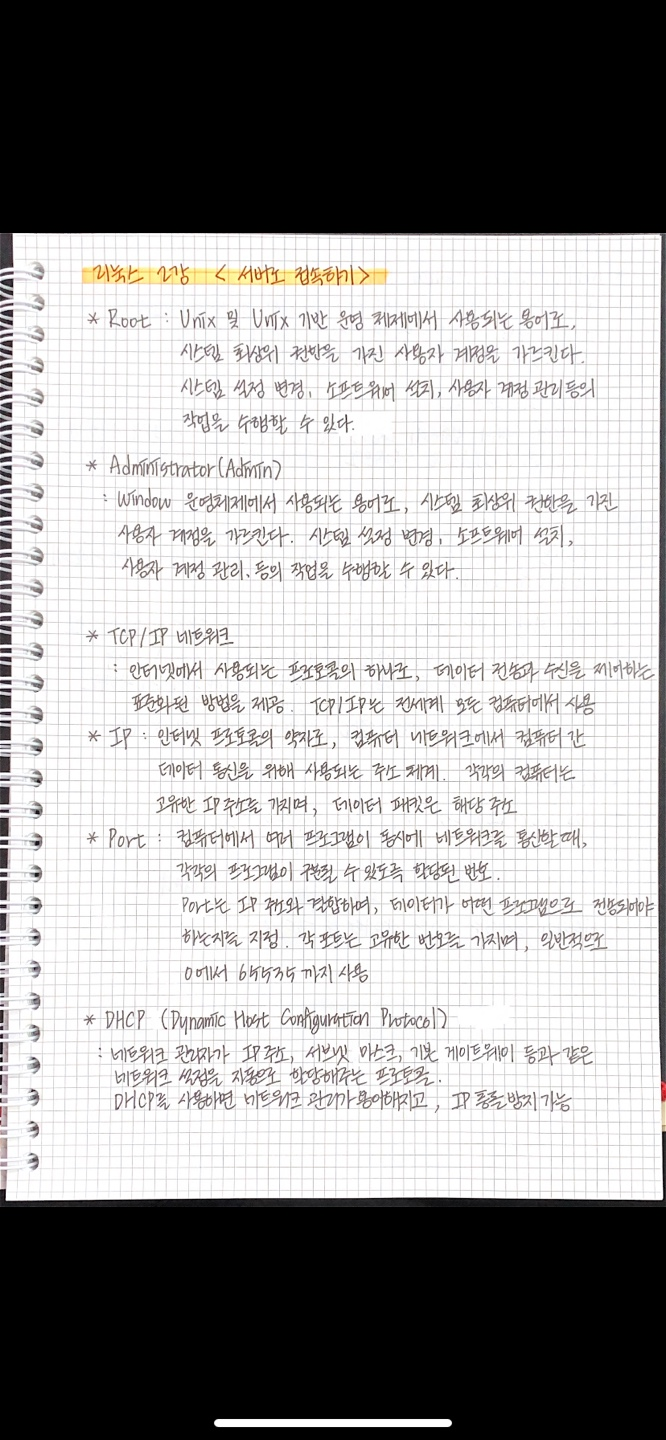 리눅스 2강 < 서버로 접속하기 >
* Root : Unix 및 Unix 기반 운영 체제에서 사용되는 용어로,
시스템 최상위 권한을 가진 사용자 계정을 가르킨다.
시스템 설정 변경, 소프트웨어 설치, 사용자 계정 관리 등의
작업을 수행할 수 있다.
* Administrator(Admin)
: Window 운영체제에서 사용되는 용어로, 시스템 최상위 권한을 가진
사용자 계정을 가르킨다. 시스템 설정 변경, 소프트웨어 설치,
사용자 계정 관리, 등의 작업을 수행할 수 있다.
* TCP/IP 네트워크
: 인터넷에서 사용되는 프로토콜의 하나로, 데이터 전송과 수신을 제어하는
표준화된 방법을 제공. TCP/IP는 전세계 모든 컴퓨터에서 사용
* IP : 인터넷 프로토콜의 약자로, 컴퓨터 네트워크에서 컴퓨터 간
데이터 통신을 위해 사용되는 주소 체계. 각각의 컴퓨터는
고유한 IP 주소를 가지며, 데이터 패킷은 해당 주소
* Port : 컴퓨터에서 여러 프로그램이 동시에 네트워크를 통신할 때,
각각의 프로그램이 구분될 수 있도록 할당된 번호.
Port는 IP 주소와 결합하여, 데이터가 어떤 프로그램으로 전송되어야
하는지를 지정. 각 포트는 고유한 번호를 가지며, 일반적으로
0에서 65535 까지 사용
* DHCP (Dynamic Host Configuration Protocol)
: 네트워크 관리자가 IP 주소, 서브넷 마스크, 기본 게이트웨이 등과 같은
네트워크 설정을 자동으로 할당해주는 프로토콜.
DHCP를 사용하면 네트워크 관리가 용이해지고, IP 충돌 방지 가능